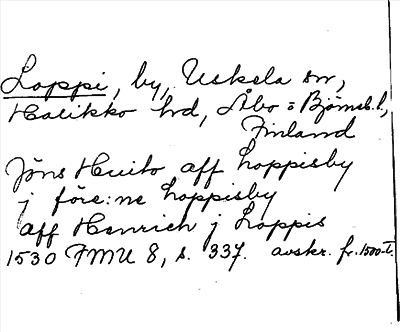 Loppi, by, Uskela sn,
Halikko hd, Åbo = Björneb. l,
Finland
Jöns Huito aff Loppisby
j före:ne Loppisby
aff Henrich j Loppis
1530 FMU 8, s. 337. avskr. fr. 1500-t.